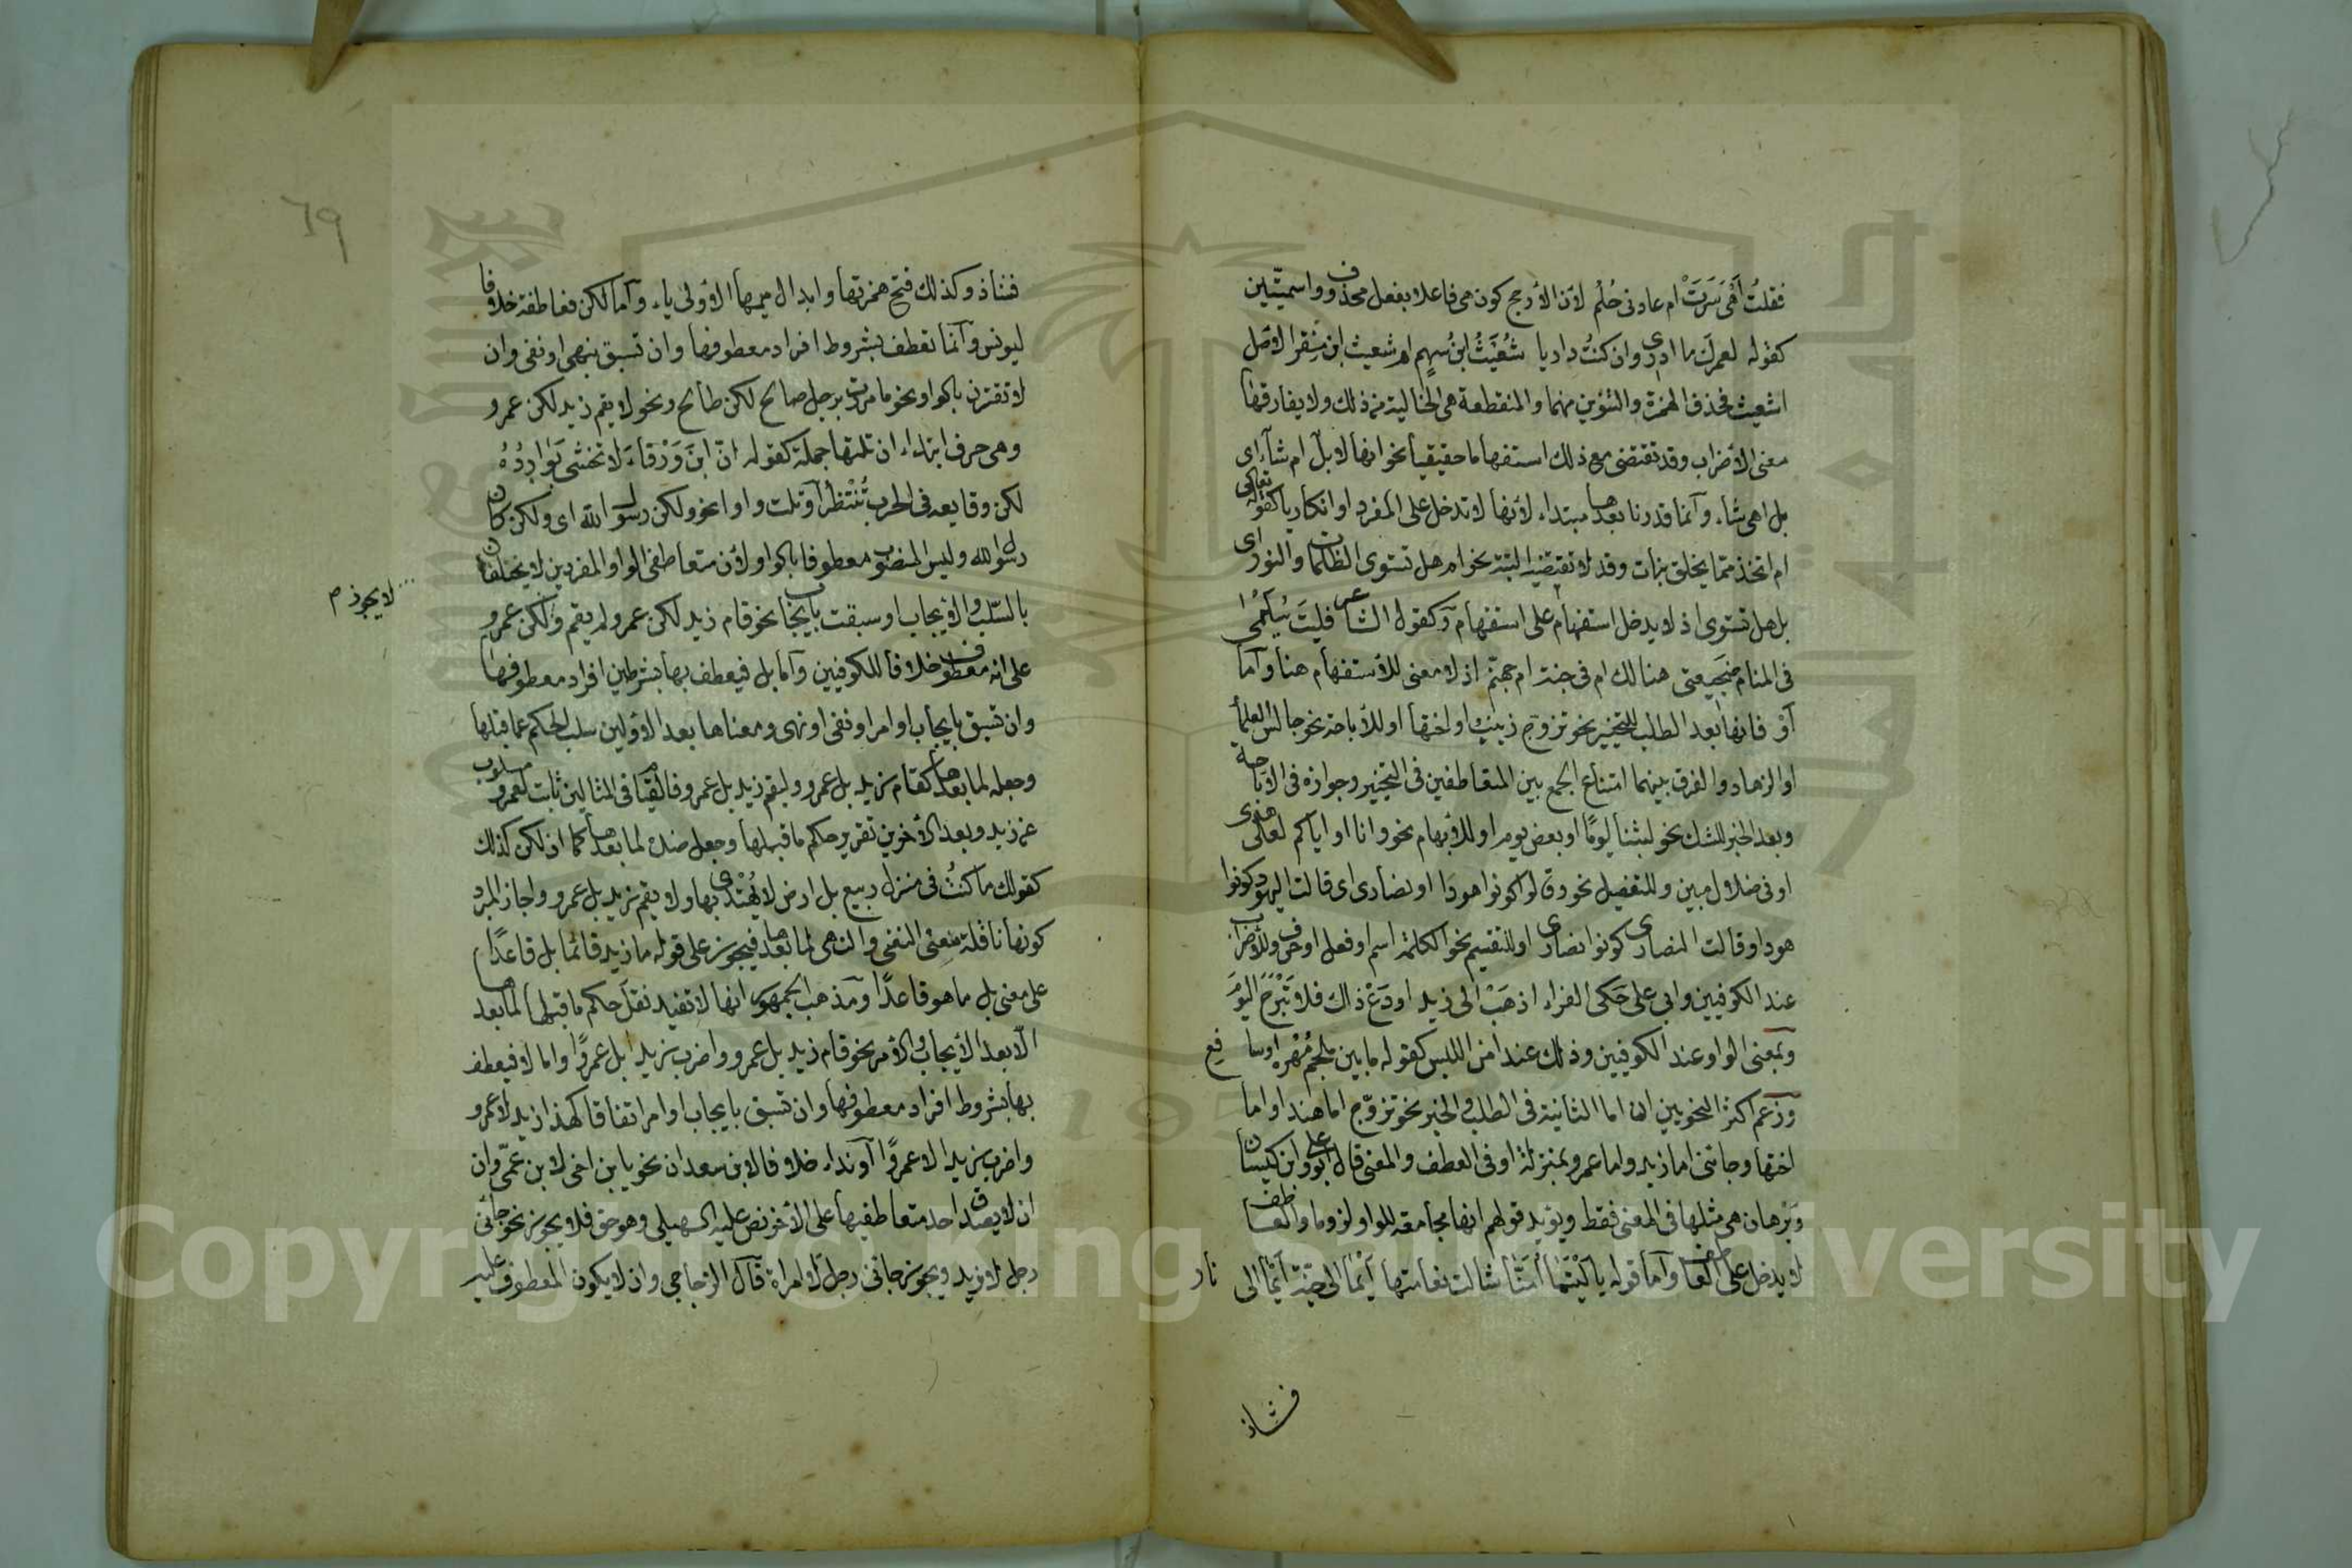 فقلتُ أَهْيَ سَرَتْ ام عادنى حُلُم لأن الأرجح كون هى فاعلا بفعل محذوف واسميتين
كقوله لعمرك ما ادرى وان كنتُ داريا شُعَيثُ ابنُ سهمٍ ام شعيث ابن منقر الاصل
اشعيث فحذف الهمزة والتنوين منهما والمنقطعة هى الخالية من ذلك ولا يفارقها
معنى الأضراب وقد تقتضى مع ذلك استفهاما حقيقيا نحو انها لأبل ام شآء اى
بل اهى شاء وآنما قدرنا بعدها مبتداء لأنها لا تدخل على المفرد او انكاريا كقوله تعالى
ام اتخذ مما يخلق بنات وقد لا تقتضيه البتة نحو ام هل تستوى الظلمات والنور اى
بل هل تستوى اذ لا يدخل استفهام على استفهام وكقول الشاعر فليتَ سُلَيْمى
فى المنام ضجيعتى هنالك ام فى جنة ام جهنم اذ لا معنى للأستفهام هنا وآما
آوْ فانها بعد الطلب للتخيير نحو تزوج زينب او اختها او للأباحة نحو جالس العلمأ
او الزهاد والفرق بينهما امتناع الجمع بين المتعاطفين فى التخيير وجوازه فى الأباحة
وبعد الخبر للشك نحو لبثنا يومًا او بعض يوم او للأبهام نحو وانا او اياكم لعلى هدى
او فى ضلال مبين وللتفصيل نحو وقالوا كونوا هودا او نصارى اى قالت اليهود كونوا
هودا وقالت النصارى كونوا نصارى او للتقسيم نحو الكلمة اسم او فعل او حرف وللأضراب
عند الكوفيين وابى على حَكى الفراء اذهَبْ الى زيد او دَعْ ذاك فلا تَبْرَحَ اليَوْمَ
وبمعنى الواو عند الكوفيين وذلك عند امن اللبس كقوله ما بين ملجم مُهْره او سافع
وزعم اكثر النحويين ان اما الثانية فى الطلب والخبر نحو تزوّج اما هندا واما
اختها وجائنى اما زيد واما عمرو بمنزلة او فى العطف والمعنى قال ابو على وابن كيسان
وبرهان هى مثلها فى المعنى فقط ويؤيد قولهم انها مجامعة للواو لزوما والعاطف
لا يدخل على العاطف وآما قوله يا لَيْتَمَا أُمَّنَا شالت نعامتها أَيْمَا الى جنّة أَيْمَا الى نار
فشاذ
٦٩
فشاذ وكذلك فتح همزتها وابدال ميمها الأولى ياء وآما لكن فعاطفة خلافا
ليونس وآنما تعطف بشروط افراد معطوفها وان تسبق بنهى او نفى وان
لا تقترن بالواو نحو ما مررت برجل صالح لكن طالح ونحو لا يقم زيد لكن عمرو
وهى حرف ابتداء ان تلتها جملة كقوله انّ ابنَ وَرْقاءَ لا تخشى بَوَادِرُهُ
لكن وقايعه فى الحرب تُنْتظَر او تلت واوا نحو ولكن رسول الله اى ولكن كان
رسول الله وليس المنصوب معطوفا بالواو لأن متعاطفى الواو المفردين لا يختلفان
بالسلب والأيجاب او سبقت بأيجاب نحو قام زيد لكن عمرو لم يقم ولكن عمرو
لا يجوز م
على انه معطوف خلافا للكوفيين وآما بل فيعطف بها بشرطين افراد معطوفها
وان تسبق بايجاب او امر او نفى او نهى ومعناها بعد الأولين سلب الحكم عما قبلها
وجعله لما بعدها كقام زيد بل عمرو وليقم زيد بل عمرو فالقيام فى المثالين ثابت لعمرو مسلوب
عن زيد وبعد الأخرين تقرير حكم ما قبلها وجعل ضده لما بعدها كما ان لكن كذلك
كقولك ما كنتُ فى منزل ربيع بل ارض لا يُهْتَدى بها ولا يقم زيد بل عمرو واجاز المبرد
كونها ناقلة معنى النفى والنهى لما بعدها فيجوز على قوله ما زيد قائما بل قاعدًا
على معنى بل ما هو قاعدًا ومذهب الجمهور انها لا تفيد نقل حكم ما قبلها لما بعدها
الّا بعد الأيجاب والأمر نحو قام زيد بل عمرو واضرب زيدا بل عمرًوا واما لا فيعطف
بها بشروط افراد معطوفها وان تسبق بايجاب او امر اتفاقا كهذا زيد لا عمرو
واضرب زيدا لا عمرًوا آو نداء خلافا لابن سعدان نحو يا بن اخى لا بن عمّى وان
ان لا يصدق احد متعاطفيها على الأخر نص عليه السهيلى وهو حق فلا يجوز نحو جائنى
رجل لا زيد ويجوز جائنى رجل لا امراة قآل الزجاجى وان لا يكون المعطوف عليه
Copyright © King Saud University